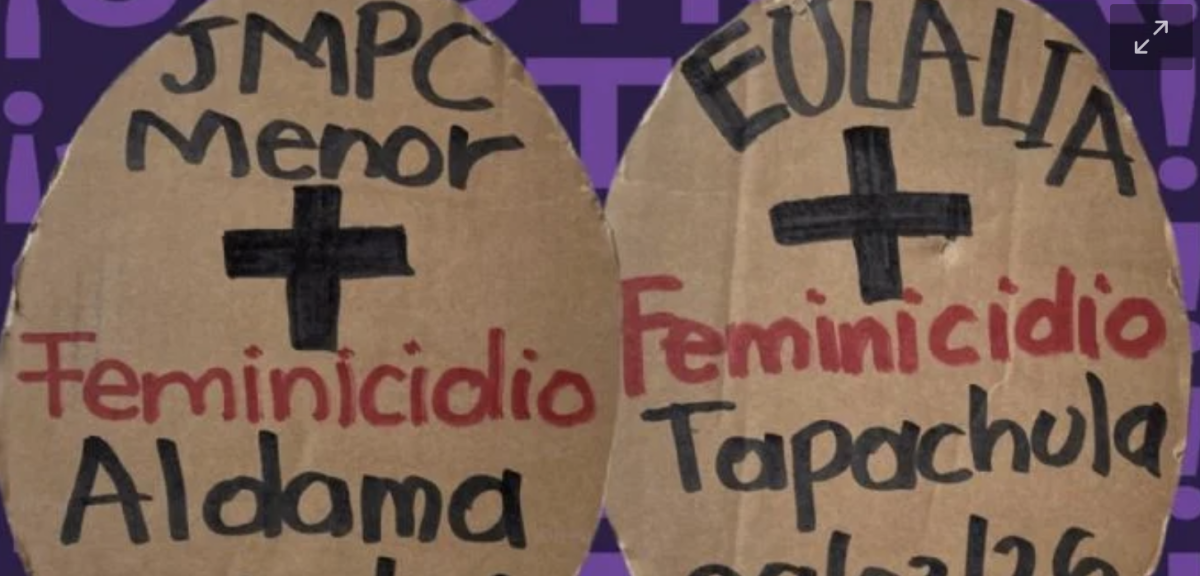 JMPC
Menor
Feminicidio
Aldama
EULALIA
Feminicidio
Tapachula